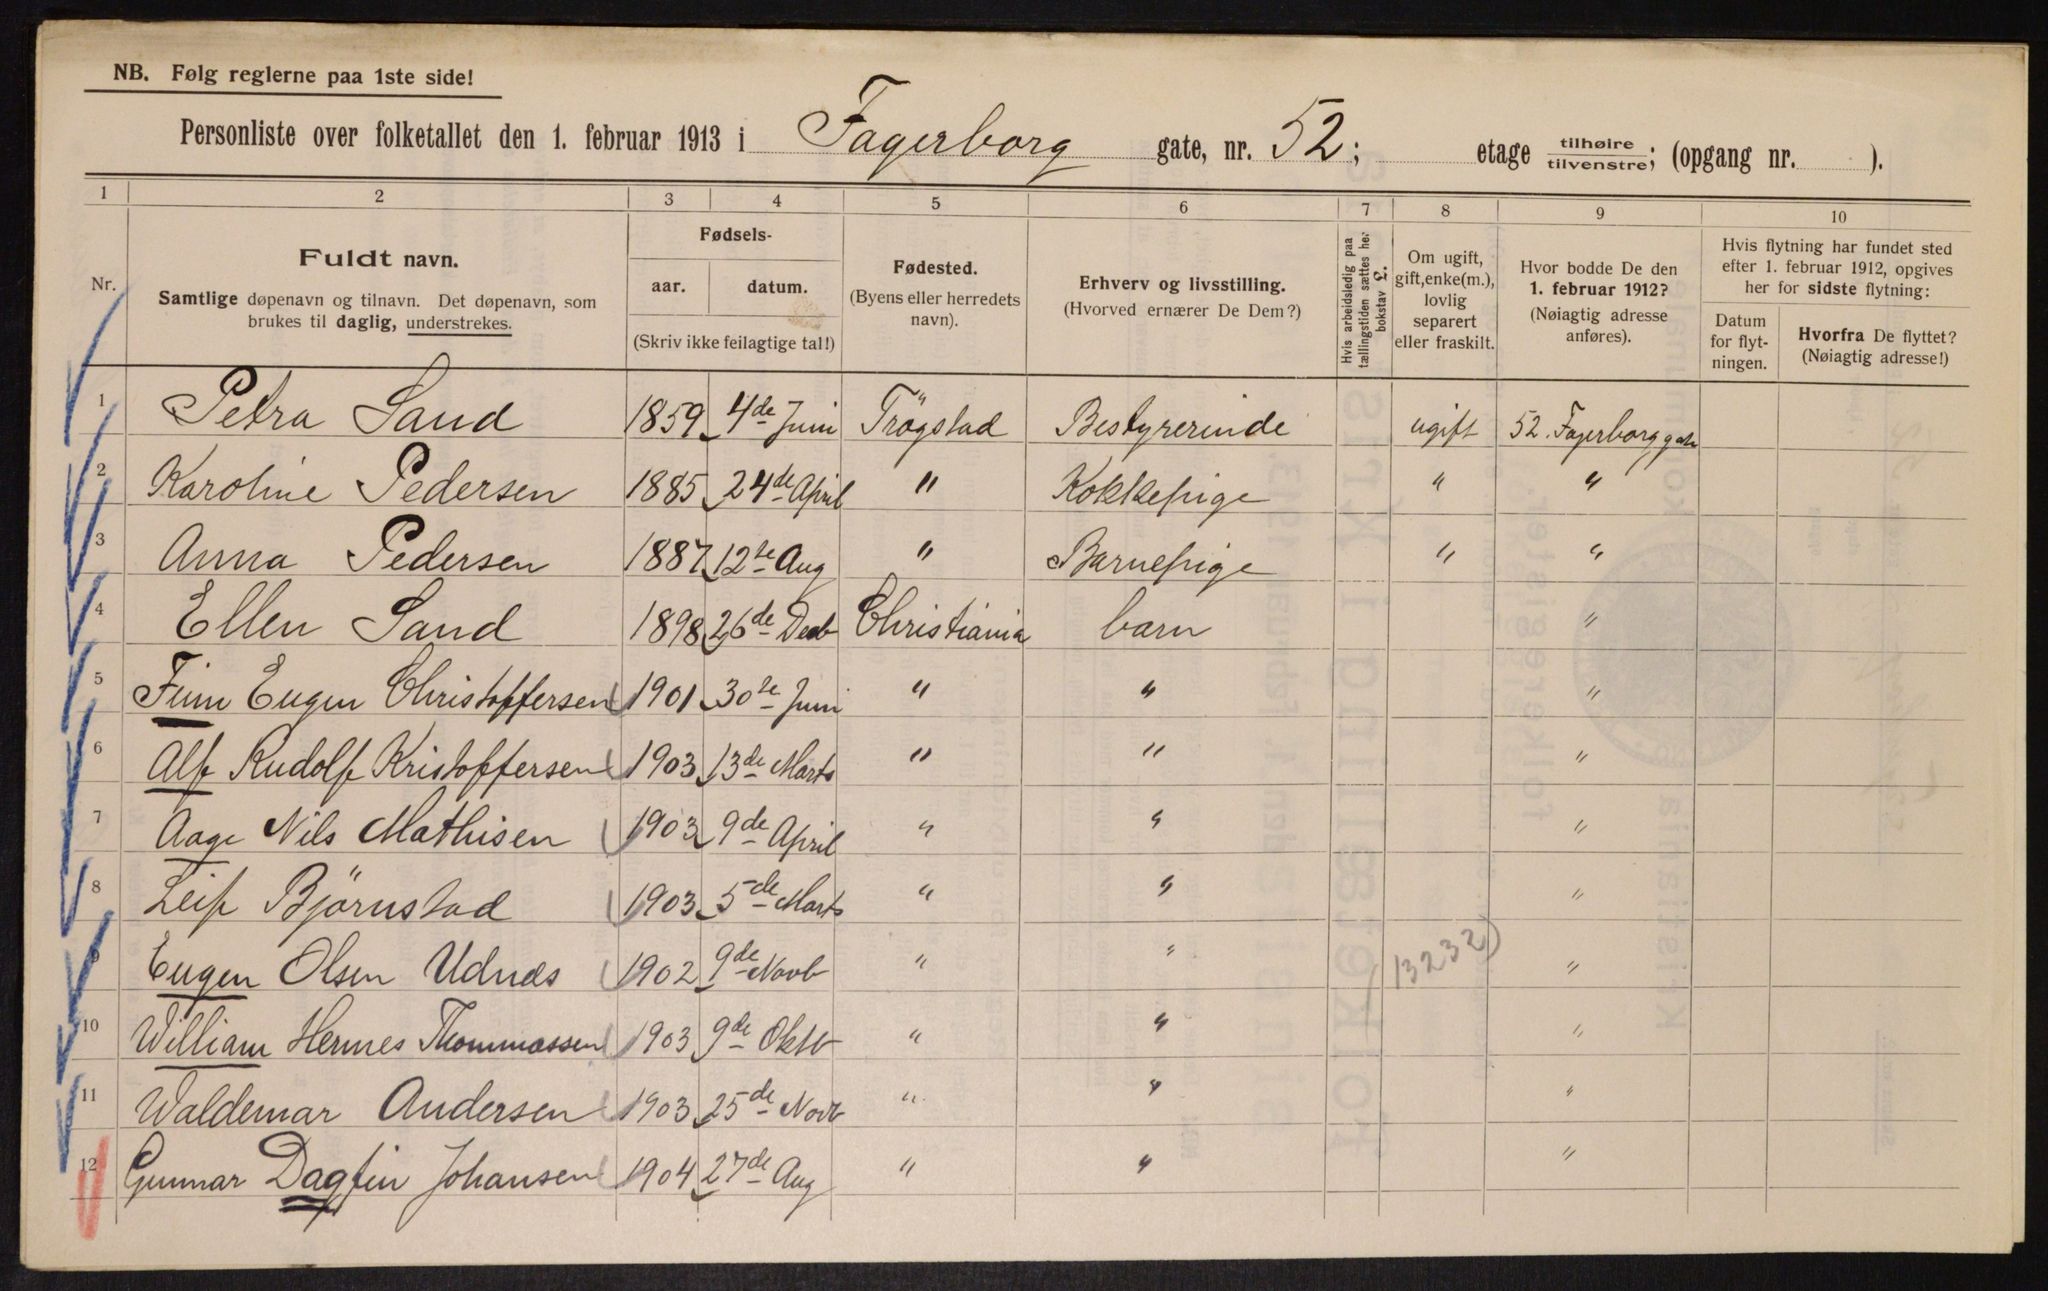 NB. Følg reglerne paa 1ste side!
Personliste over folketallet den 1. februar 1913 i Fagerborg gate, nr. 52; etage tilhøire/tilvenstre; (opgang nr. ).
1 2 3 4 5 6 7 8 9 10
Nr.
Fuldt navn.
Samtlige døpenavn og tilnavn. Det døpenavn, som
brukes til daglig, understrekes.
Fødsels-
aar. datum.
(Skriv ikke feilagtige tal!)
Fødested.
(Byens eller herredets
navn).
Erhverv og livsstilling.
(Hvorved ernærer De Dem?)
Hvis arbeidsledig paa
tællingstiden sættes her
bokstav £.
Om ugift,
gift, enke(m.),
lovlig
separert
eller fraskilt.
Hvor bodde De den
1. februar 1912?
(Nøiagtig adresse
anføres).
Hvis flytning har fundet sted
efter 1. februar 1912, opgives
her for sidste flytning:
Datum
for flyt-
ningen.
Hvorfra De flyttet?
(Nøiagtig adresse!)
1 Petra Sand 1859 4de Juni Trøgstad Bestyrerinde ugift 52. Fagerborggate
2 Karoline Pedersen 1885 24de April " Kokkepige " "
3 Anna Pedersen 1887 12te Aug " Barnepige " "
4 Ellen Sand 1898 26de Decb Christiania barn "
5 Finn Eugen Christoffersen 1901 30te Juni " " "
6 Alf Rudolf Kristoffersen 1903 13de Marts " " "
7 Aage Nils Mathisen 1903 9de April " " "
8 Leif Bjørnstad 1903 5de Marts " " "
9 Eugen Olsen Udnæs 1902 9de Novb " " 13232) "
10 William Hermes Thommassen 1903 9de Oktb " " "
11 Waldemar Andersen 1903 25de Novb " " "
12 Gunnar Dagfin Johansen 1904 27de Aug " " "